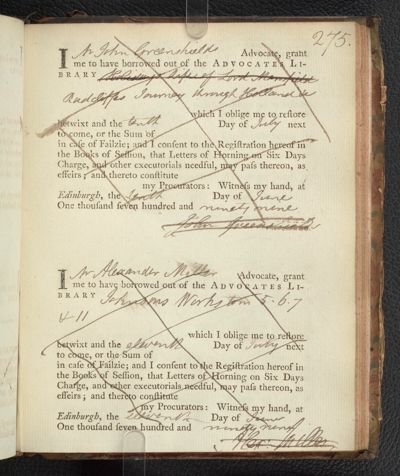 275.
I Mr John Greenshields Advocate, grant
me to have borrowed out of the ADVOCATES LI-
BRARY Life of Lord Mansfield
Radcliffes Journey through Holland &c
which I oblige me to reſtore
betwixt and the tenth Day of July next
to come, or the Sum of
in caſe of Failzie; and I conſent to the Regiſtration hereof in
the Books of Seſſion, that Letters of Horning on Six Days
Charge, and other executorials needful, may paſs thereon, as
effeirs; and thereto conſtitute
my Procurators: Witneſs my hand, at
Edinburgh, the tenth Day of June
One thouſand ſeven hundred and ninety nine
John Greenshields
I Mr Alexander Miller Advocate, grant
me to have borrowed out of the ADVOCATES LI-
BRARY Johnsons Works tom 5. 6. 7
& 11
which I oblige me to reſtore
betwixt and the eleventh Day of July next
to come, or the Sum of
in caſe of Failzie; and I conſent to the Regiſtration hereof in
the Books of Seſſion, that Letters of Horning on Six Days
Charge, and other executorials needful, may paſs thereon, as
effeirs; and thereto conſtitute
my Procurators: Witneſs my hand, at
Edinburgh, the eleventh Day of June
One thouſand ſeven hundred and ninety nine
Alexr Miller